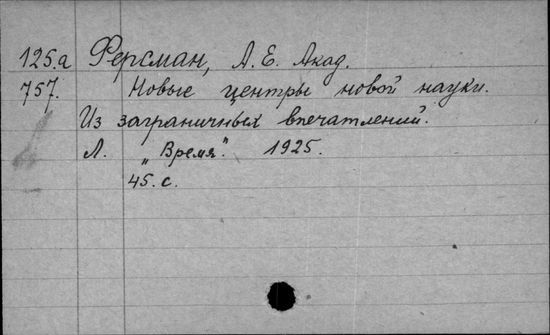 125.а Ферсман, А.Е. Акад.
757. Новые центры новой науки.
Из заграничных впечатлений.
Л. „Время." 1925.
45. с.